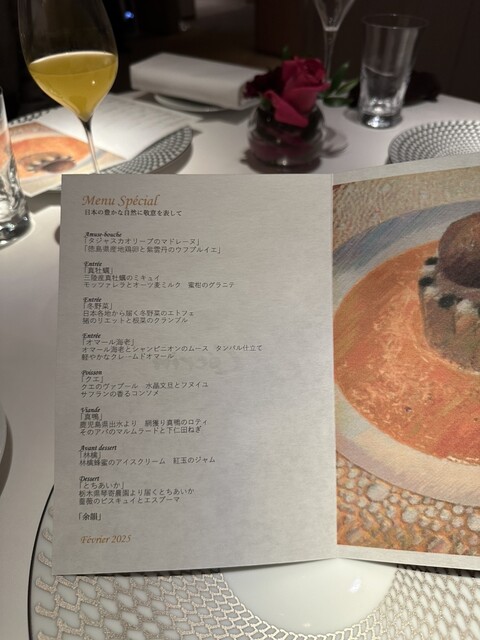 Menu Spécial
日本の豊かな自然に敬意を表して
Amuse-bouche
「タジャスカオリーブのマドレーヌ」
「徳島県産地鶏卵と紫雲丹のウフブルイエ」
Entrée
「真牡蠣」
三陸産真牡蠣のミキュイ
モッツァレラとオーツ麦ミルク 蜜柑のグラニテ
Entrée
「冬野菜」
日本各地から届く冬野菜のエトフェ
猪のリエットと根菜のクランブル
Entrée
「オマール海老」
オマール海老とシャンピニオンのムース タンバル仕立て
軽やかなクレームドオマール
Poisson
「クエ」
クエのヴァプール 水晶文旦とフヌイユ
サフランの香るコンソメ
Viande
「真鴨」
鹿児島県出水より 網獲り真鴨のロティ
そのアバのマルムラードと下仁田ねぎ
Avant dessert
「林檎」
林檎蜂蜜のアイスクリーム 紅玉のジャム
Dessert
「とちあいか」
栃木県琴寄農園より届くとちあいか
薔薇のビスキュイとエスプーマ
「余韻」
Février 2025